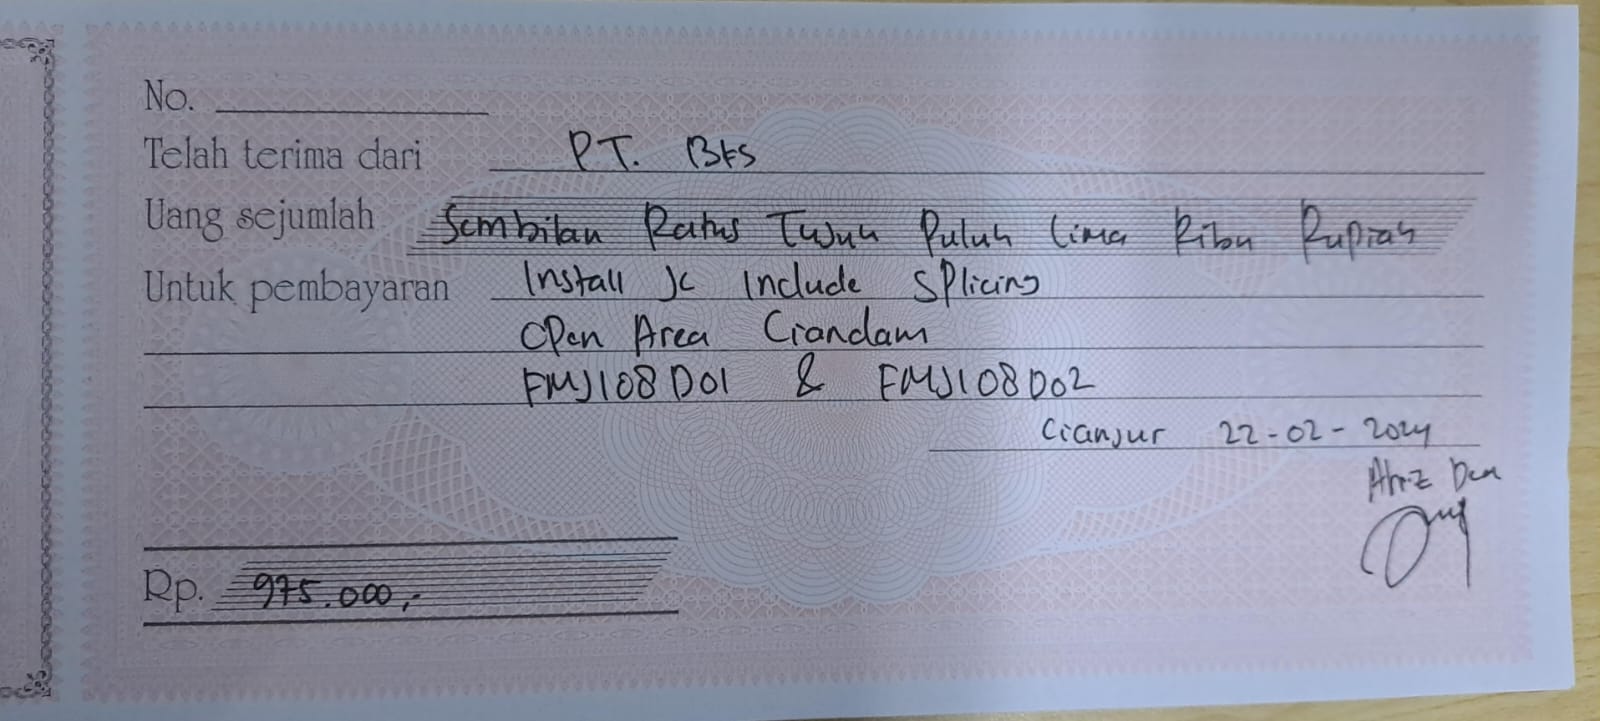 No.
Telah terima dari PT. BKS
Uang sejumlah Sembilan Ratus Tujuh Puluh Lima Ribu Rupiah
Untuk pembayaran Install JC Include Splicing
Open Area Ciandam
FMJ108D01 & FMJ108D02
Cianjur 22-02-2024
Rp. 975.000,-